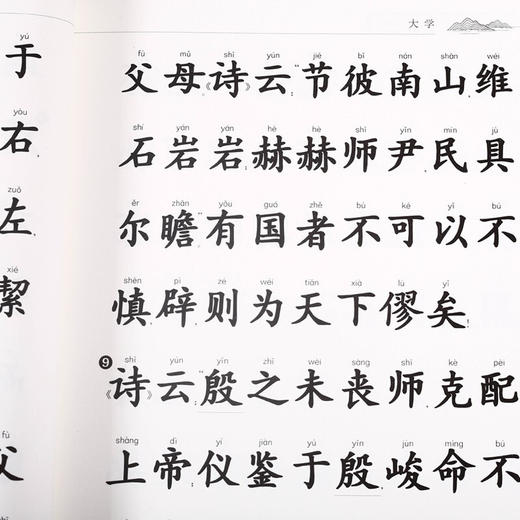 大学
fù mǔ shī yún jié bǐ nán shān wéi
父母《诗》云：“节彼南山，维
shí yán yán hè hè shī yǐn mín jù
石岩岩。赫赫师尹，民具
ěr zhān yǒu guó zhě bù kě yǐ bú
尔瞻。”有国者不可以不
shèn pì zé wéi tiān xià lù yǐ
慎，辟则为天下僇矣！
shī yún yīn zhī wèi sàng shī kè pèi
❾《诗》云：殷之未丧师，克配
shàng dì yí jiàn yú yīn jùn mìng bú
上帝。仪鉴于殷，峻命不
yú
于
yòu
右，
zuǒ
左，
xié
絜
fù
父